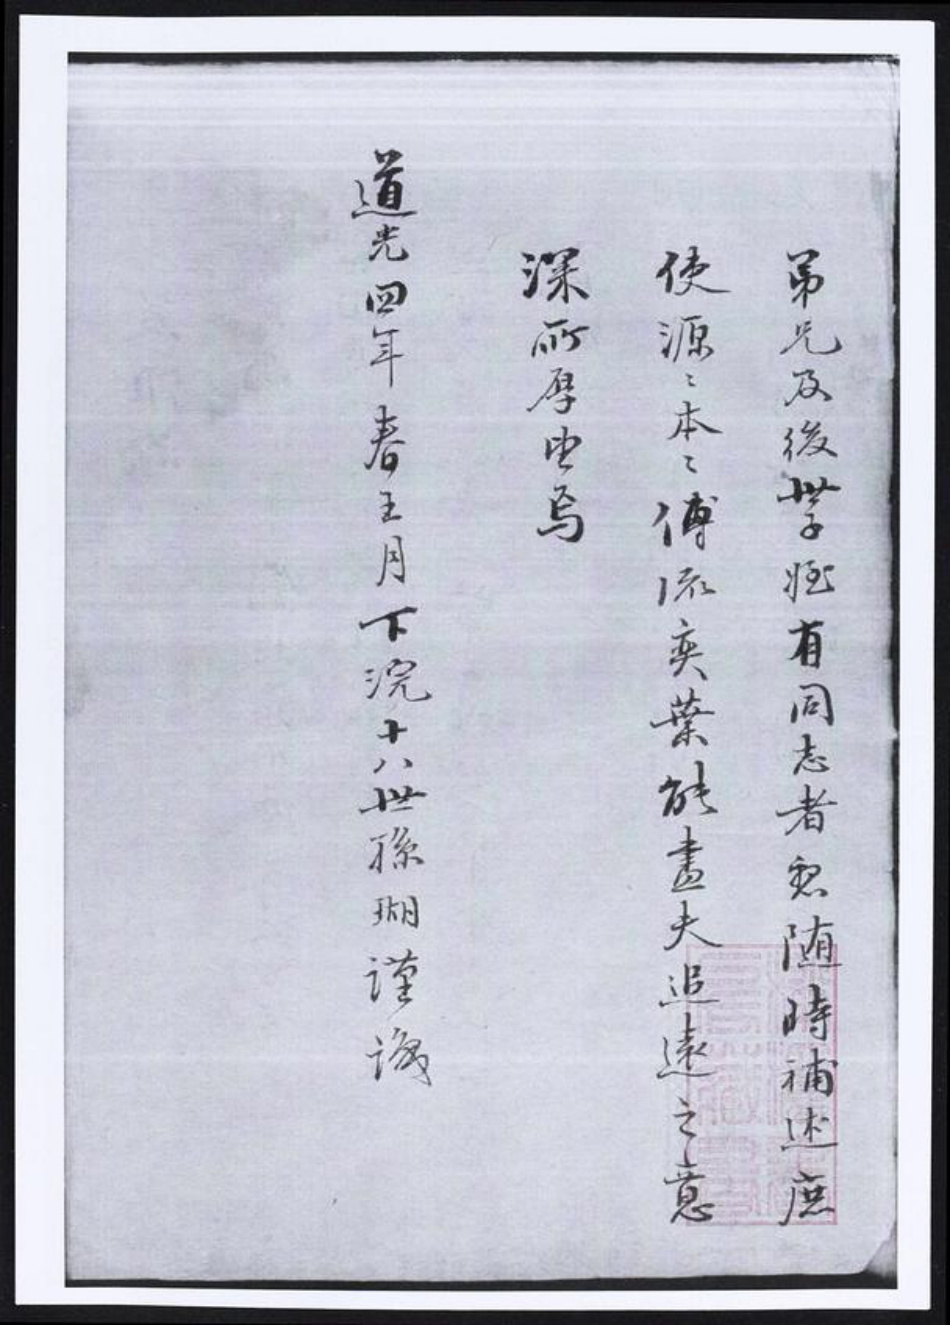 弟兄及後世子姪有同志者懇随時補述庶
使源〻本〻傳流奕葉能盡夫追遠之意
深所厚望焉
道光四年春王月下浣十八世孫瑚謹識